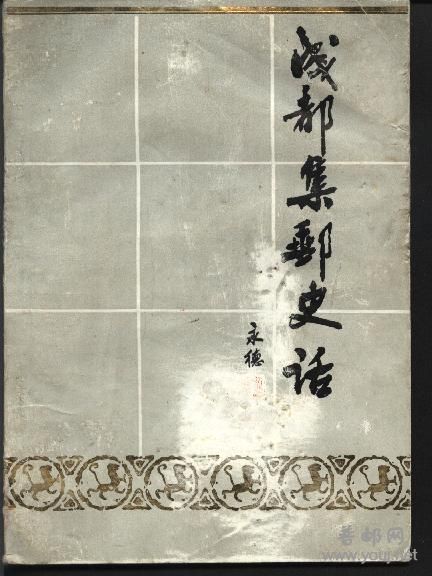 成都集郵史话
永德
普邮网
www.youj.net